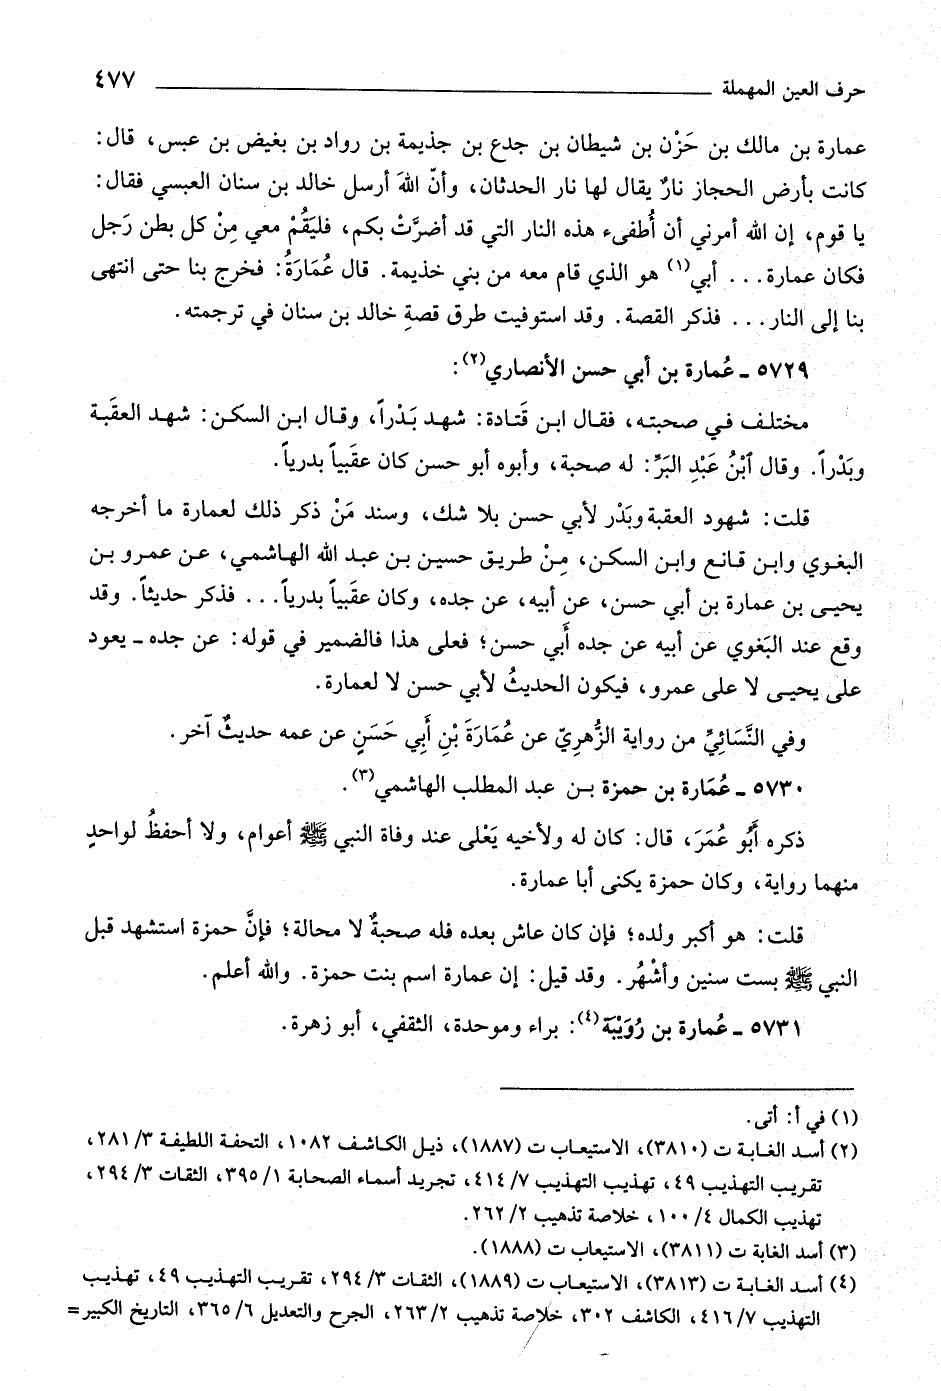 حرف العين المهملة ــــــــــــــــــــ ٤٧٧
عمارة بن مالك بن حَزْن بن شيطان بن جدع بن جذيمة بن رواد بن بغيض بن عبس، قال:
كانت بأرض الحجاز نارٌ يقال لها نار الحدثان، وأنّ اللهَ أرسل خالد بن سنان العبسي فقال:
يا قوم، إن الله أمرني أن أُطفىء هذه النار التي قد أضرَّتْ بكم، فليَقُمْ معي مِنْ كل بطن رَجل
فكان عمارة... أبي(١) هو الذي قام معه من بني خذيمة. قال عُمَارَةُ: فخرج بنا حتى انتهى
بنا إلى النار... فذكر القصة. وقد استوفيت طرق قصةِ خالد بن سنان في ترجمته.
٥٧٢٩ ـ عُمارة بن أبي حسن الأنصاري(٢):
مختلف في صحبته، فقال ابن قَتادة: شهد بَدْراً، وقال ابن السكن: شهد العقَبة
وبَدْراً. وقال ٱبْنُ عَبْدِ البَرِّ: له صحبة، وأبوه أبو حسن كان عقَبياً بدرياً.
قلت: شهود العقبة وبَدْر لأبي حسن بلا شك، وسند مَنْ ذكر ذلك لعمارة ما أخرجه
البغوي وابن قانع وابن السكن، مِنْ طريق حسين بن عبد الله الهاشمي، عن عمرو بن
يحيى بن عمارة بن أبي حسن، عن أبيه، عن جده، وكان عقَبياً بدرياً... فذكر حديثاً. وقد
وقع عند البَغوي عن أبيه عن جده أَبي حسن؛ فعلى هذا فالضمير في قوله: عن جده ـ يعود
على يحيى لا على عمرو، فيكون الحديثُ لأبي حسن لا لعمارة.
وفي النَّسَائِيِّ من رواية الزُّهرِيّ عن عُمَارَةَ بْنِ أَبِي حَسَنٍ عن عمه حديثٌ آخر.
٥٧٣٠ ـ عُمَارة بن حمزة بن عبد المطلب الهاشمي(٣).
ذكره أَبُو عُمَرَ، قال: كان له ولأخيه يَعْلى عند وفاة النبي ﷺ أعوام، ولا أحفظُ لواحدٍ
منهما رواية، وكان حمزة يكنى أبا عمارة.
قلت: هو أكبر ولده؛ فإن كان عاش بعده فله صحبةٌ لا محالة؛ فإنَّ حمزة استشهد قبل
النبي ﷺ بست سنين وأشْهُر. وقد قيل: إن عمارة اسم بنت حمزة. والله أعلم.
٥٧٣١ ـ عُمارة بن رُوَيْبَة(٤): براء وموحدة، الثقفي، أبو زهرة.
(١) في أ: أتى.
(٢) أسد الغابة ت (٣٨١٠)، الاستيعاب ت (١٨٨٧)، ذيل الكاشف ١٠٨٢، التحفة اللطيفة ٣/ ٢٨١،
تقريب التهذيب ٤٩، تهذيب التهذيب ٧/ ٤١٤، تجريد أسماء الصحابة ١/ ٣٩٥، الثقات ٣/ ٢٩٤،
تهذيب الكمال ٤/ ١٠٠، خلاصة تذهيب ٢/ ٢٦٢.
(٣) أسد الغابة ت (٣٨١١)، الاستيعاب ت (١٨٨٨).
(٤) أسد الغابة ت (٣٨١٣)، الاستيعاب ت (١٨٨٩)، الثقات ٣/ ٢٩٤، تقريب التهذيب ٤٩، تهذيب
التهذيب ٧/ ٤١٦، الكاشف ٣٠٢، خلاصة تذهيب ٢/ ٢٦٣، الجرح والتعديل ٦/ ٣٦٥، التاريخ الكبير=